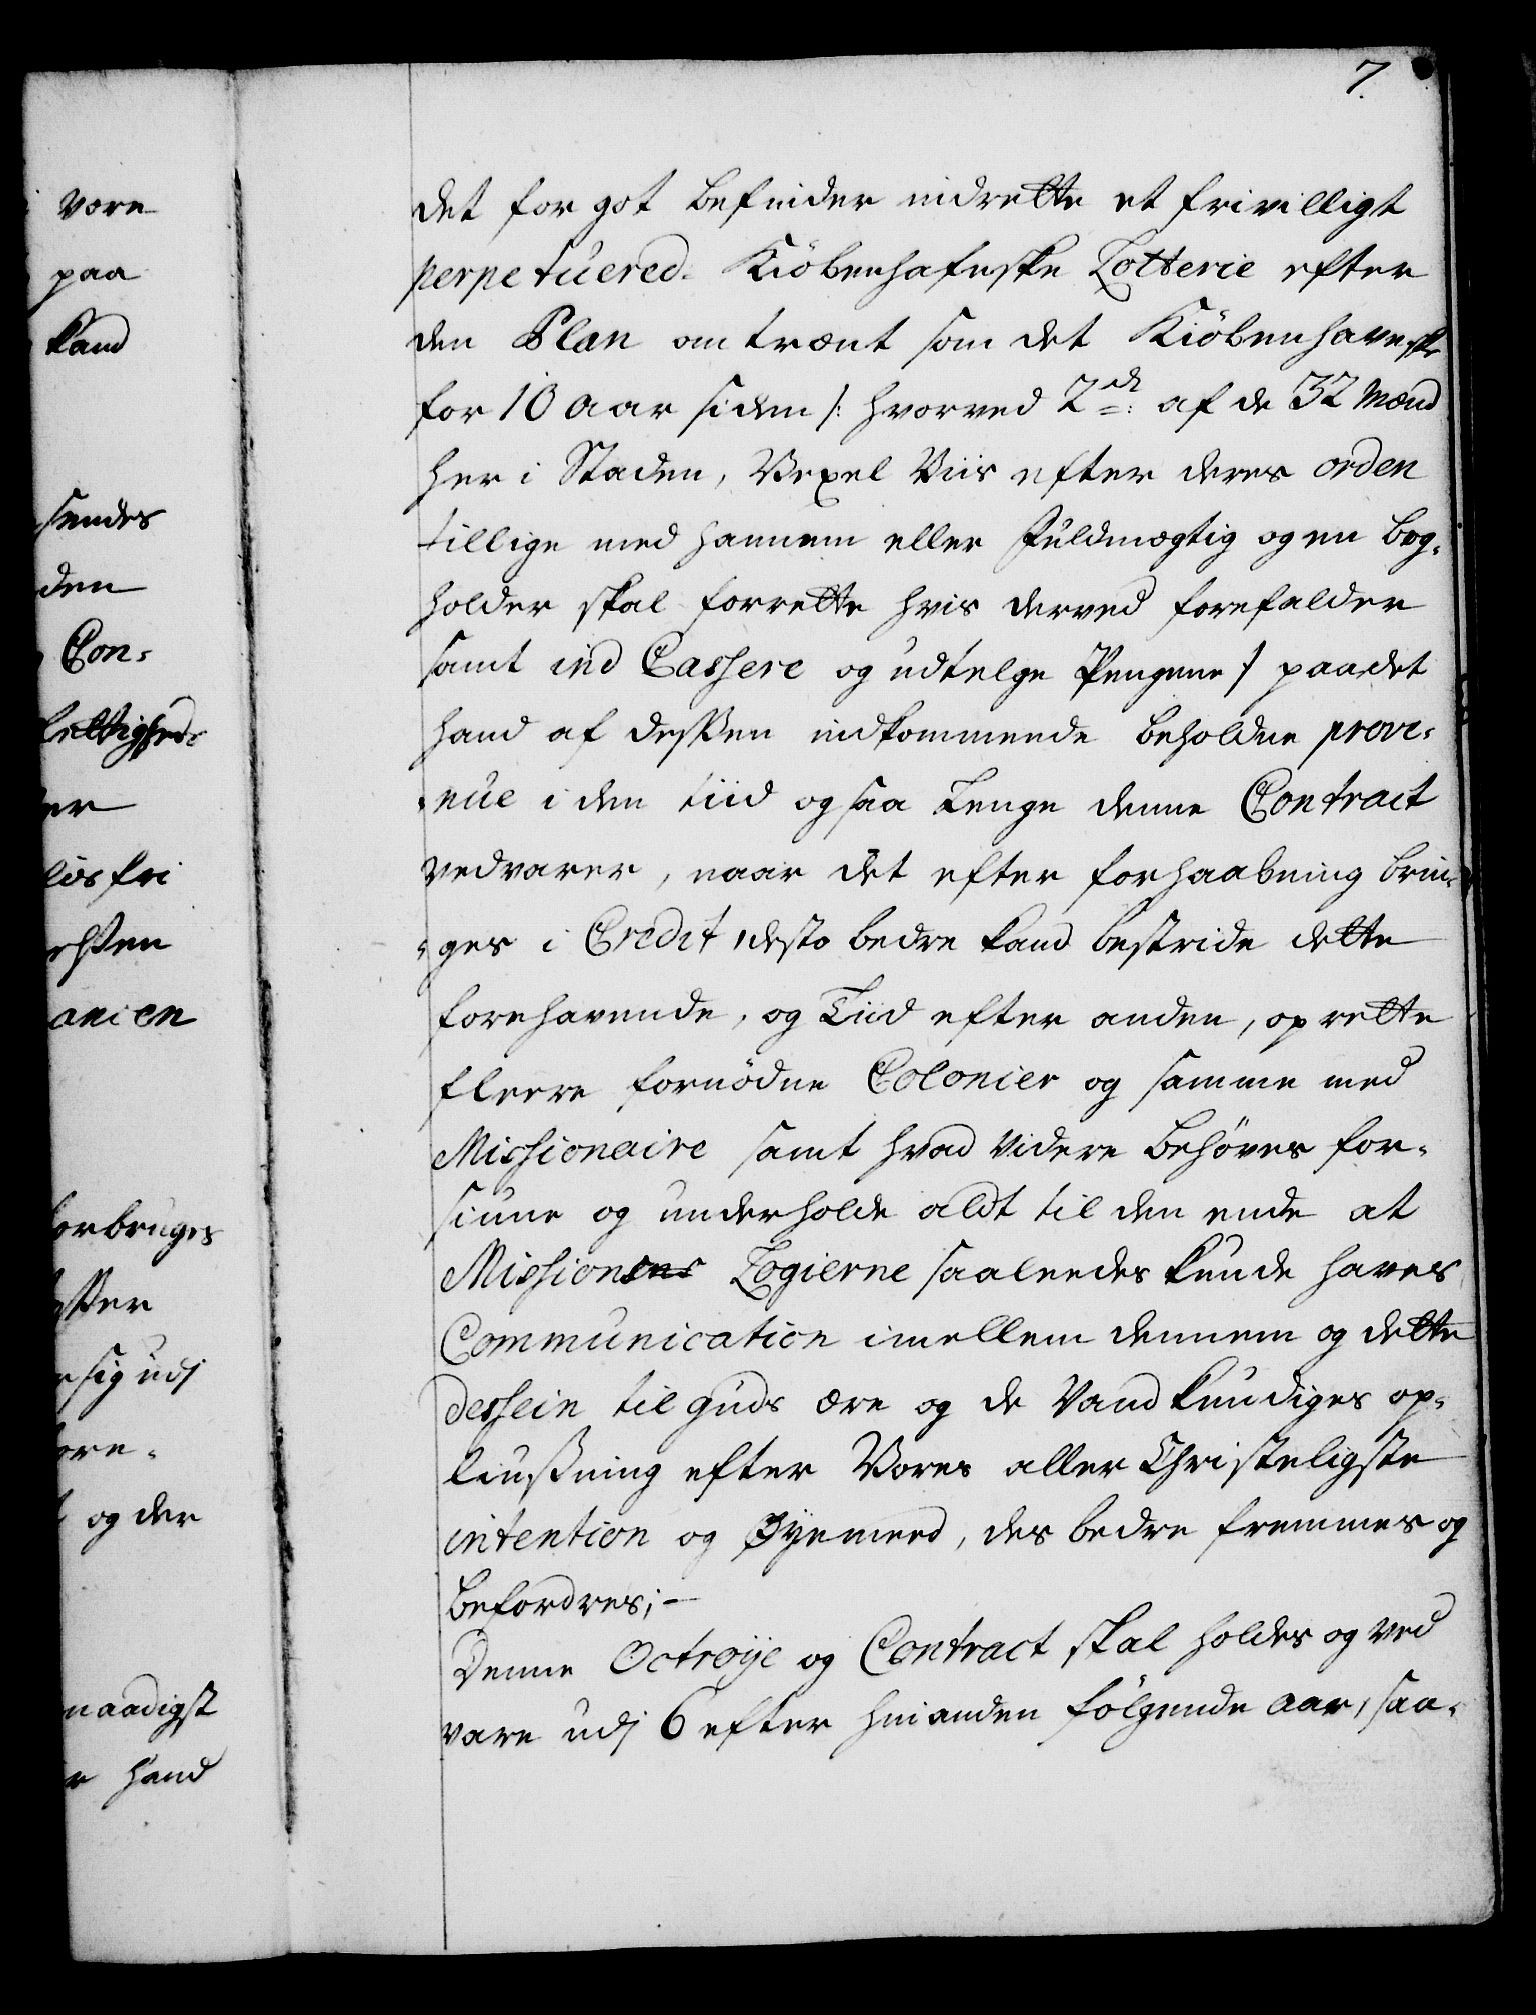 7.
vore
paa
kand
sendes
den
Con-
er
fri
ersten
anien
forbruges
sig udj
fore-
og der
naadigst
hand
det for got befinder indrette et frivilligt
perpetuered Kiöbenhafnske Lotterie efter
den Plan omtrænt som det Kiöbenhavnske
for 10 aar siden /: hvorved 2de: af de 32 Mænd
her i Staden, Vexel Viis efter deres orden
tillige med hannem eller Fuldmægtig og en bog-
holder skal forrette hvis derved forefalder
samt ind Cassere og udtelge Pengene / paa det
hand af dessen indkommende beholdne prove-
-nue i den tiid og saa Lenge denne Contract
vedvarer, naar det efter forhaabning brin-
-ges i Credit, desto bedre kand bestride dette
forehavende, og Tiid efter anden, oprette
fleere fornödne Colonier og samme med
Missionaire samt hvad videre behöves for-
siune og underholde aldt til den ende at
Missionens Logierne saaleedes kunde haves
Communication imellem dennem og dette
dessein til Guds ære og de Vandkundiges op-
liusning efter Vores aller Christeligste
intention og Øyemeed, des bedre fremmes og
befordres;-
Denne Octroije og Contract skal holdes og ved
vare udj 6 efter hinanden fölgende Aar, saa-